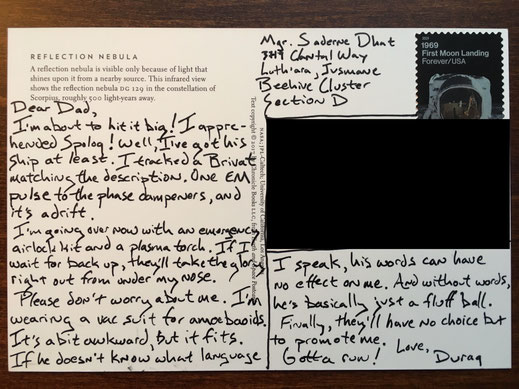 REFLECTION NEBULA
A reflection nebula is visible only because of light that
shines upon it from a nearby source. This infrared view
shows the reflection nebula DG 129 in the constellation of
Scorpius, roughly 500 light-years away.
Dear Dad,
I'm about to hit it big! I appre-
hended Spolog! Well, I've got his
ship at least. I tracked a Brivat
matching the description. One EM
pulse to the phase dampeners, and
it's adrift.
I'm going over now with an emergency
airlock kit and a plasma torch. If I
wait for back up, they'll take the glory
right out from under my nose.
Please don't worry about me. I'm
wearing a vac suit for amoebaoids.
It's a bit awkward, but it fits.
If he doesn't know what language
Mgr. Saderne Dhat
Chantal Way
Luth'ara, Jusmane
Beehive Cluster
Section D
2019
1969
First Moon Landing
Forever/USA
I speak, his words can have
no effect on me. And without words,
he's basically just a fluff ball.
Finally, they'll have no choice but
to promote me. Love,
Gotta run! Duraq
Text copyright © Chronicle Books LLC,
NASA/JPL-Caltech/University of California, Los Angeles